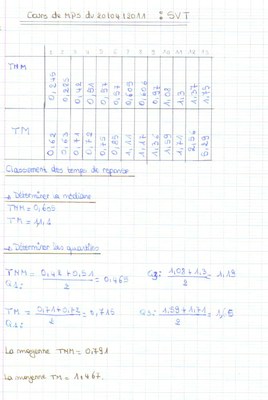 Cours de MPS du 20/04/2011 : SVT
1 2 3 4 5 6 7 8 9 10 11 12 13
TNM 0,245 0,285 0,42 0,51 0,57 0,57 0,605 0,606 0,92 1,08 1,3 1,37 1,75
TM 0,62 0,63 0,71 0,72 0,75 0,85 1,11 1,17 1,36 1,59 1,71 2,56 5,29
Classement des temps de reponse
→ Déterminer la médiane
TNM = 0,605
TM = 1,1
→ Déterminer les quartiles
TNM = 0,42 + 0,51 / 2 = 0,465 Q3: 1,08 + 1,3 / 2 = 1,19
Q1:
TM = 0,71 + 0,72 / 2 = 0,715 Q3: 1,59 + 1,71 / 2 =
Q1:
La moyenne TNM = 0,791
La moyenne TM = 1,467.